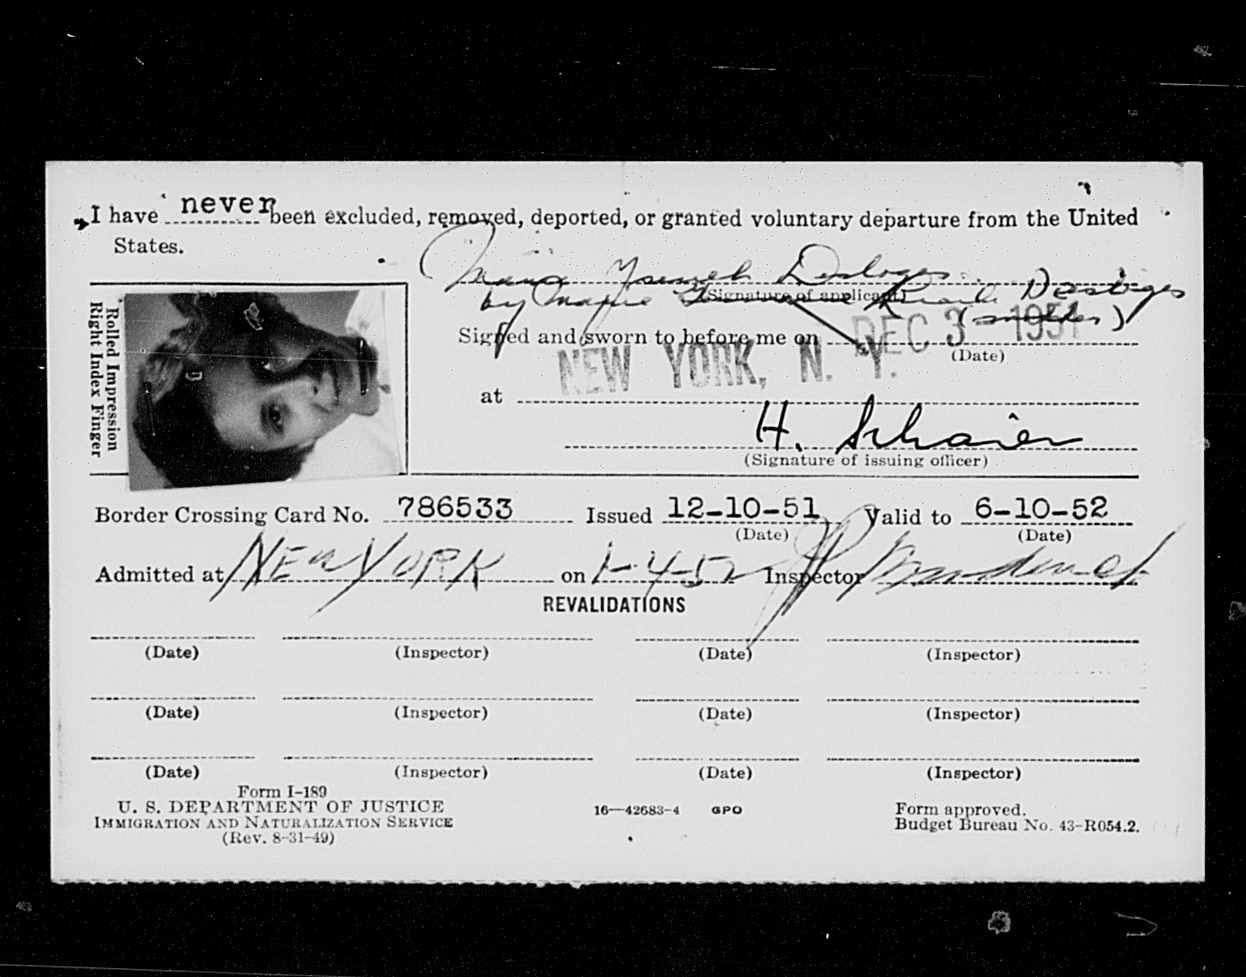 I have never been excluded, removed, deported, or granted voluntary departure from the United
States.
Desloges
by Desloges
(Signature of applicant)
(mother)
Rolled Impression
Right Index Finger
Signed and sworn to before me on DEC 3 1951
(Date)
at NEW YORK, N. Y.
H.
(Signature of issuing officer)
Border Crossing Card No. 786533 Issued 12-10-51 Valid to 6-10-52
(Date) (Date)
Admitted at New York on 1-4-52 Inspector
REVALIDATIONS
(Date) (Inspector) (Date) (Inspector)
(Date) (Inspector) (Date) (Inspector)
(Date) (Inspector) (Date) (Inspector)
Form I-189
U. S. DEPARTMENT OF JUSTICE 16—42683-4 GPO Form approved.
IMMIGRATION AND NATURALIZATION SERVICE Budget Bureau No. 43-R054.2.
(Rev. 8-31-49)